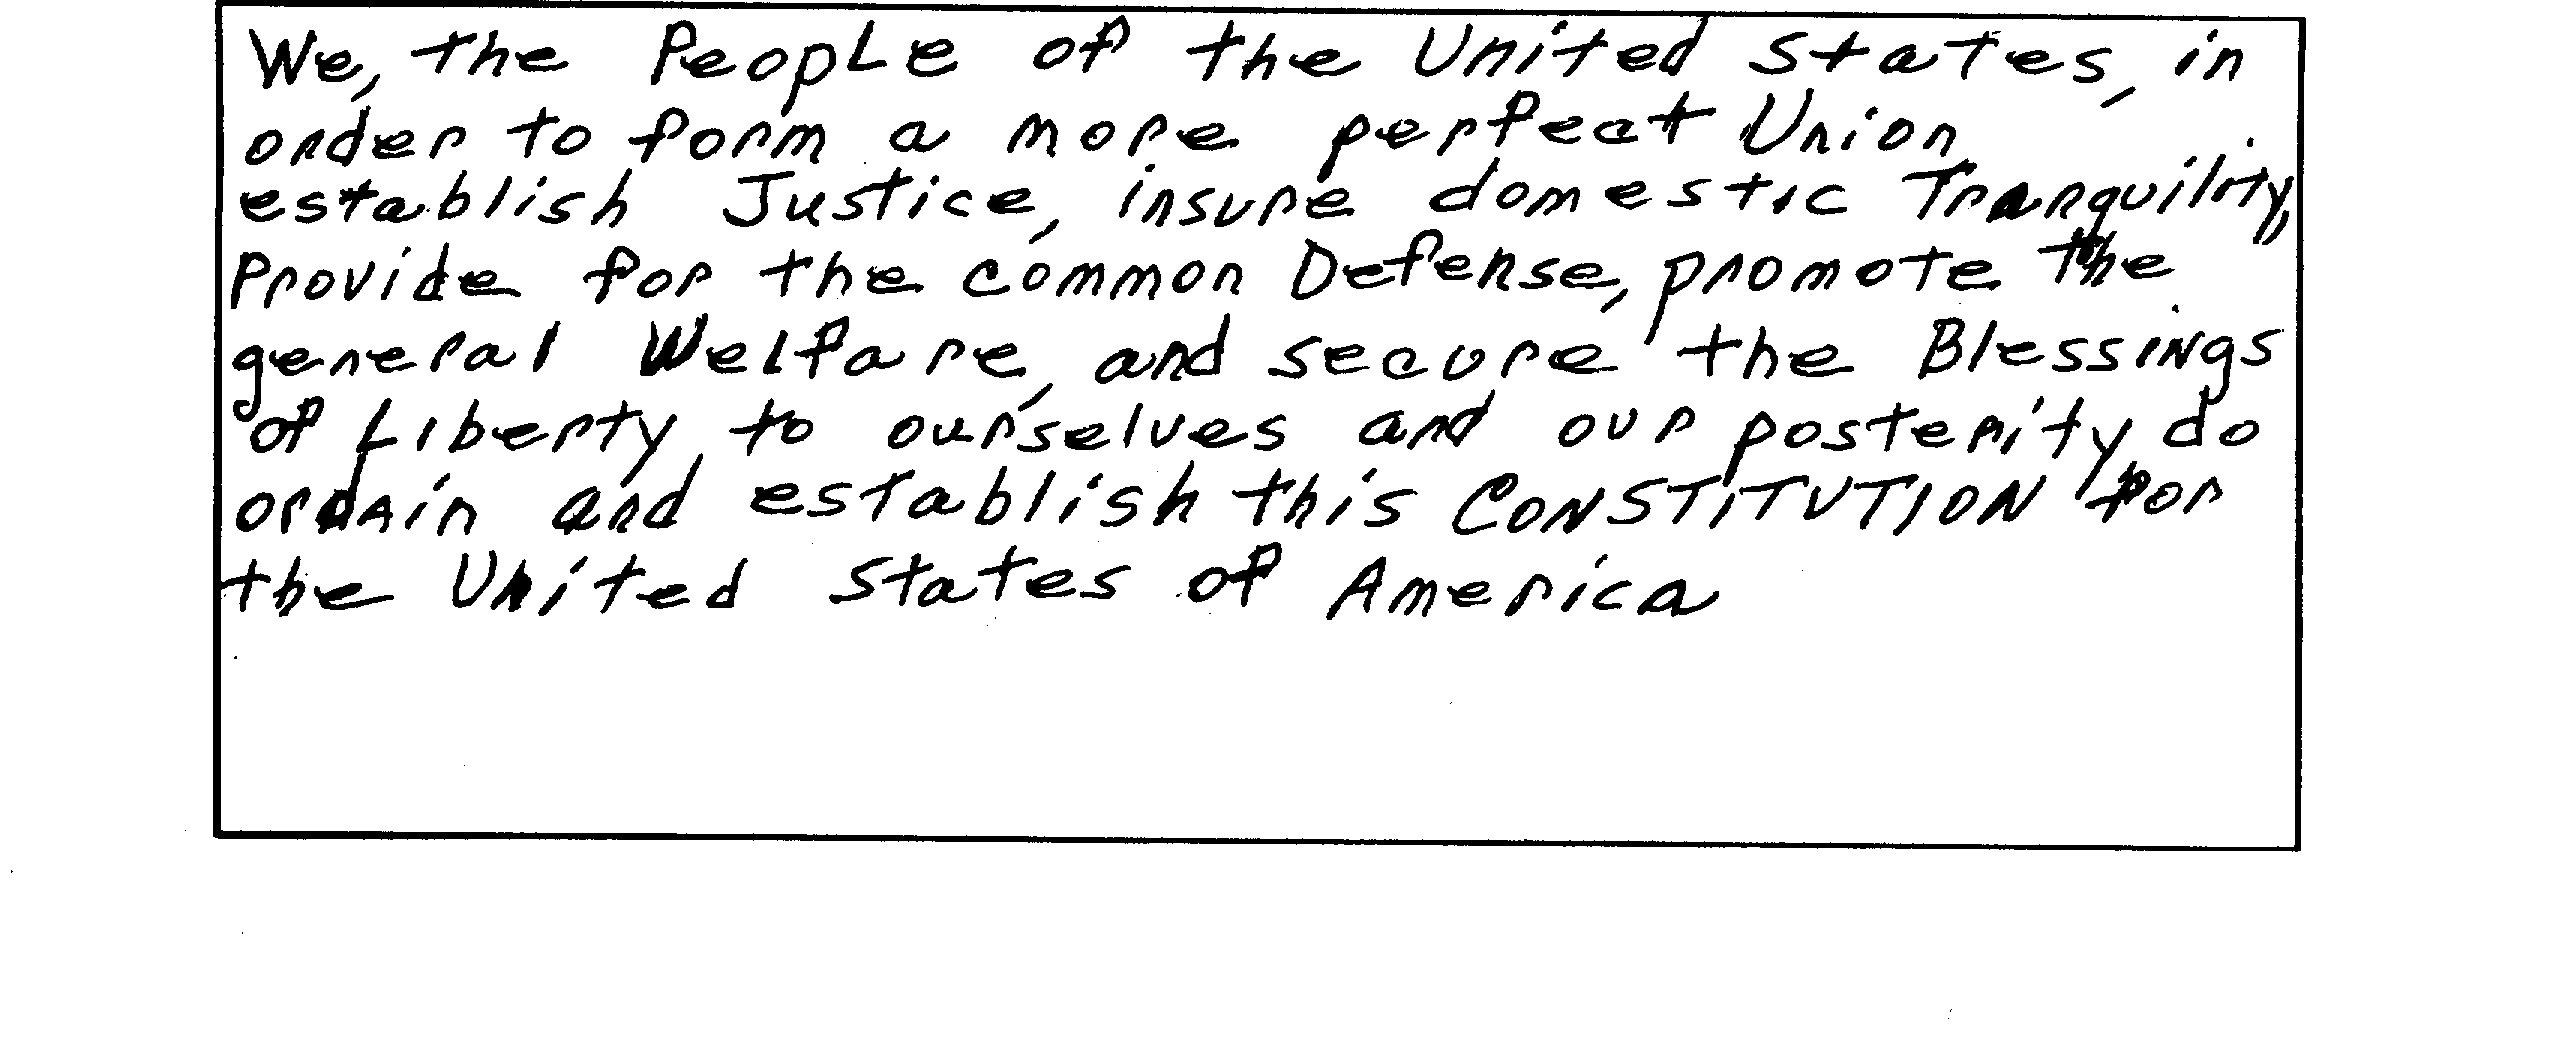 We, the People of the United States, in
order to form a more perfect Union,
establish Justice, insure domestic Tranquility,
Provide for the common Defense, promote the
general Welfare, and secure the Blessings
of Liberty to ourselves and our posterity, do
ordain and establish this CONSTITUTION for
the United States of America